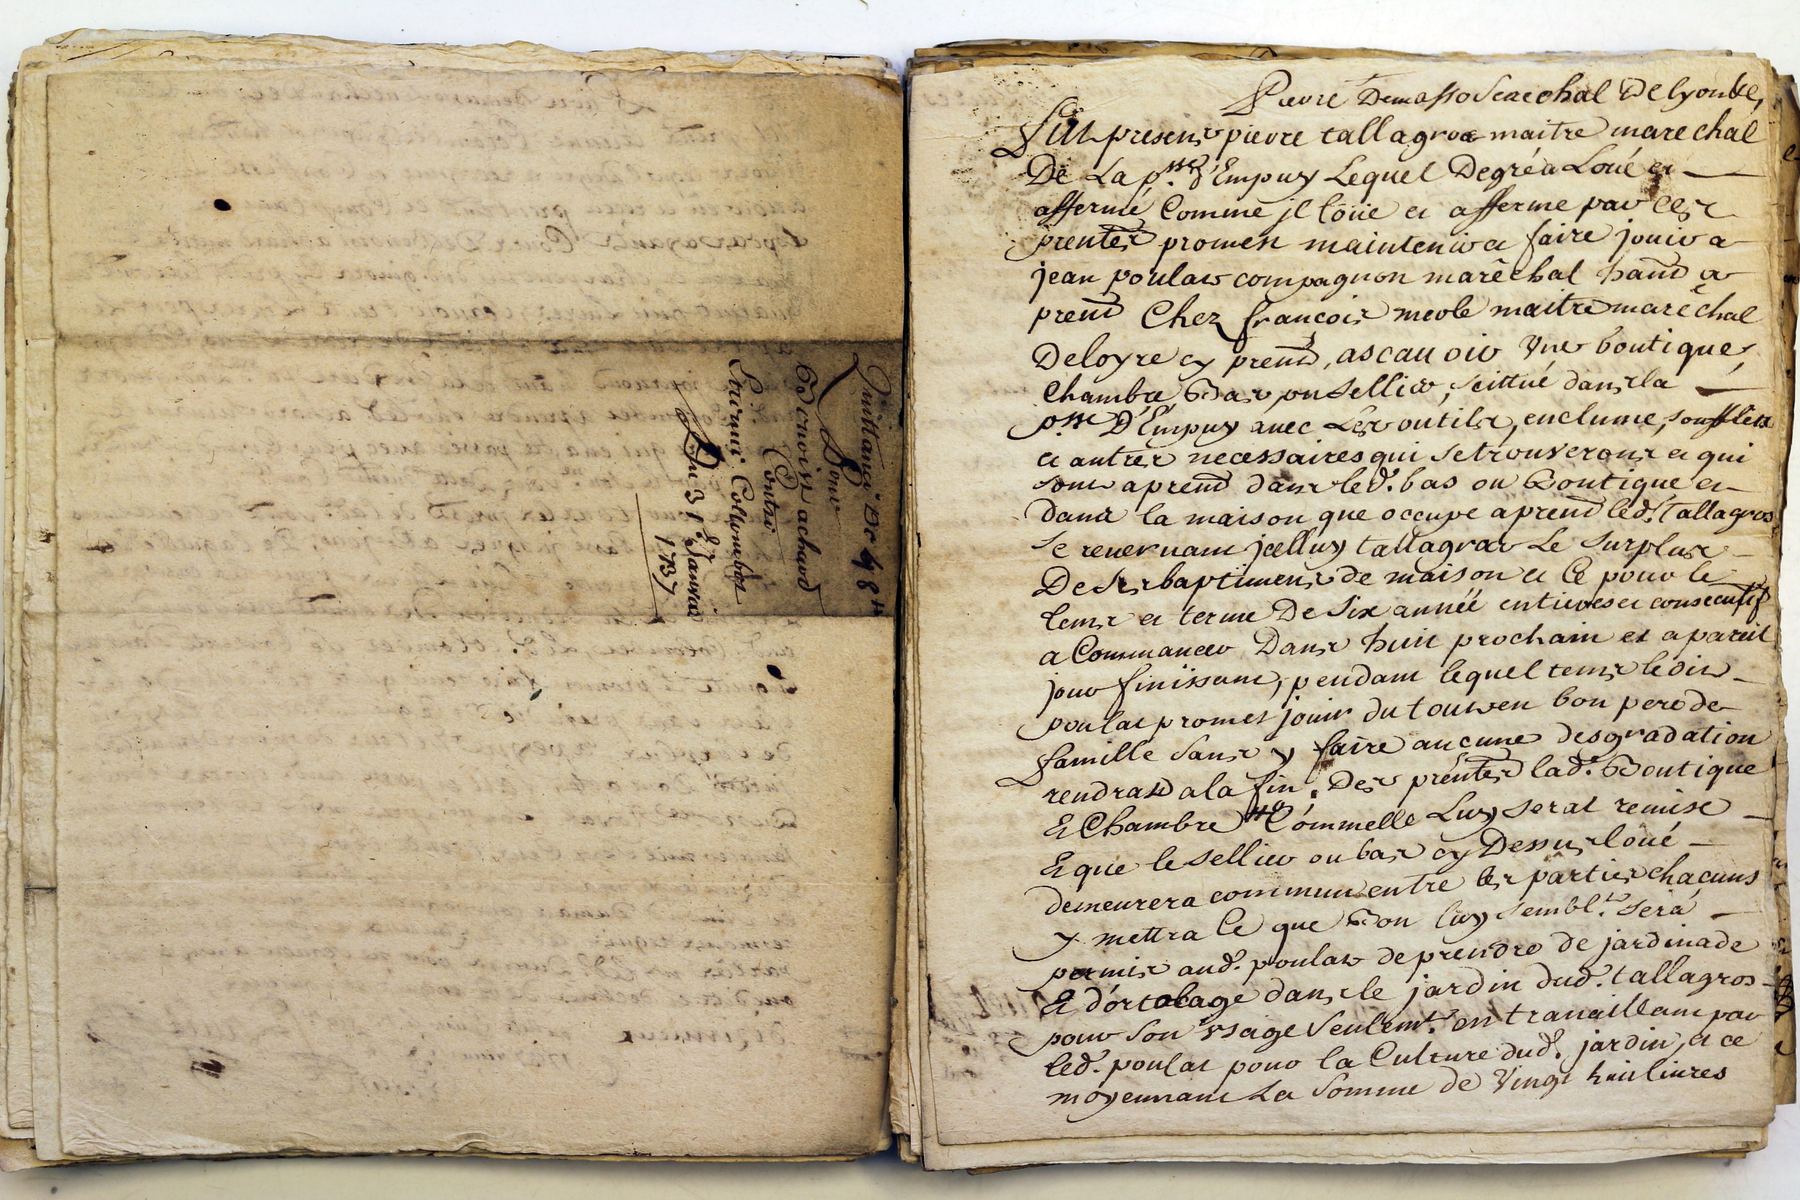 Quittance De 98#
Pour
Benoist achard
Contre
Etienne Collombet
Du 31e Janvier
1737
Pierre Demasso Senechal De lyon &c,
fut present pierre tallagros maitre marechal
De La p.sse d'Empuy Lequel De gré a Loué et
affermé Comme jl loüe et afferme par ces
p̃rentes promest maintenir et faire jouir a
jean poulat compagnon marêchal hãnt a
p̃rent Chez françois merle maitre marêchal
De loyre cy p̃rent, ascauoir Une boutique,
Chambre, Bas, ou Sellier, scittué dans la
p.sse D'Empuy auec Les outils, enclume, soufflets
et autres necessaires qui se trouueront et qui
sont a p̃rent dans led. bas ou Boutique et
dans la maison que occupe a p̃rent led. Tallagros
se reseruant jcelluy tallagros Le surplus
De ses baptiments de maison et Ce pour le
tems et terme De Six année entieres et consecutif
a Commancer Dans huit prochain et a pareil
jour finissant, pendant lequel tems ledit
poulat promet jouir du tout en bon pere de
famille sans y faire aucune desgradation
rendrat a la fin Des p̃rentes lad. Boutique
Et Chambre Commelle Luy serat remise
Et que le sellier ou bas cy Dessus loué
demeurera commun entre les parties chacuns
y mettra Ce que Bon luy sembl.t Sera
permis aud. poulat de prendre de jardinade
Et d'ortolage dans le jardin dud. tallagros
pour son Vsage seulem.t en trauaillant par
led. poulat pour la Culture dud. jardin, et ce
moyennant La Somme de Vingt huit liures